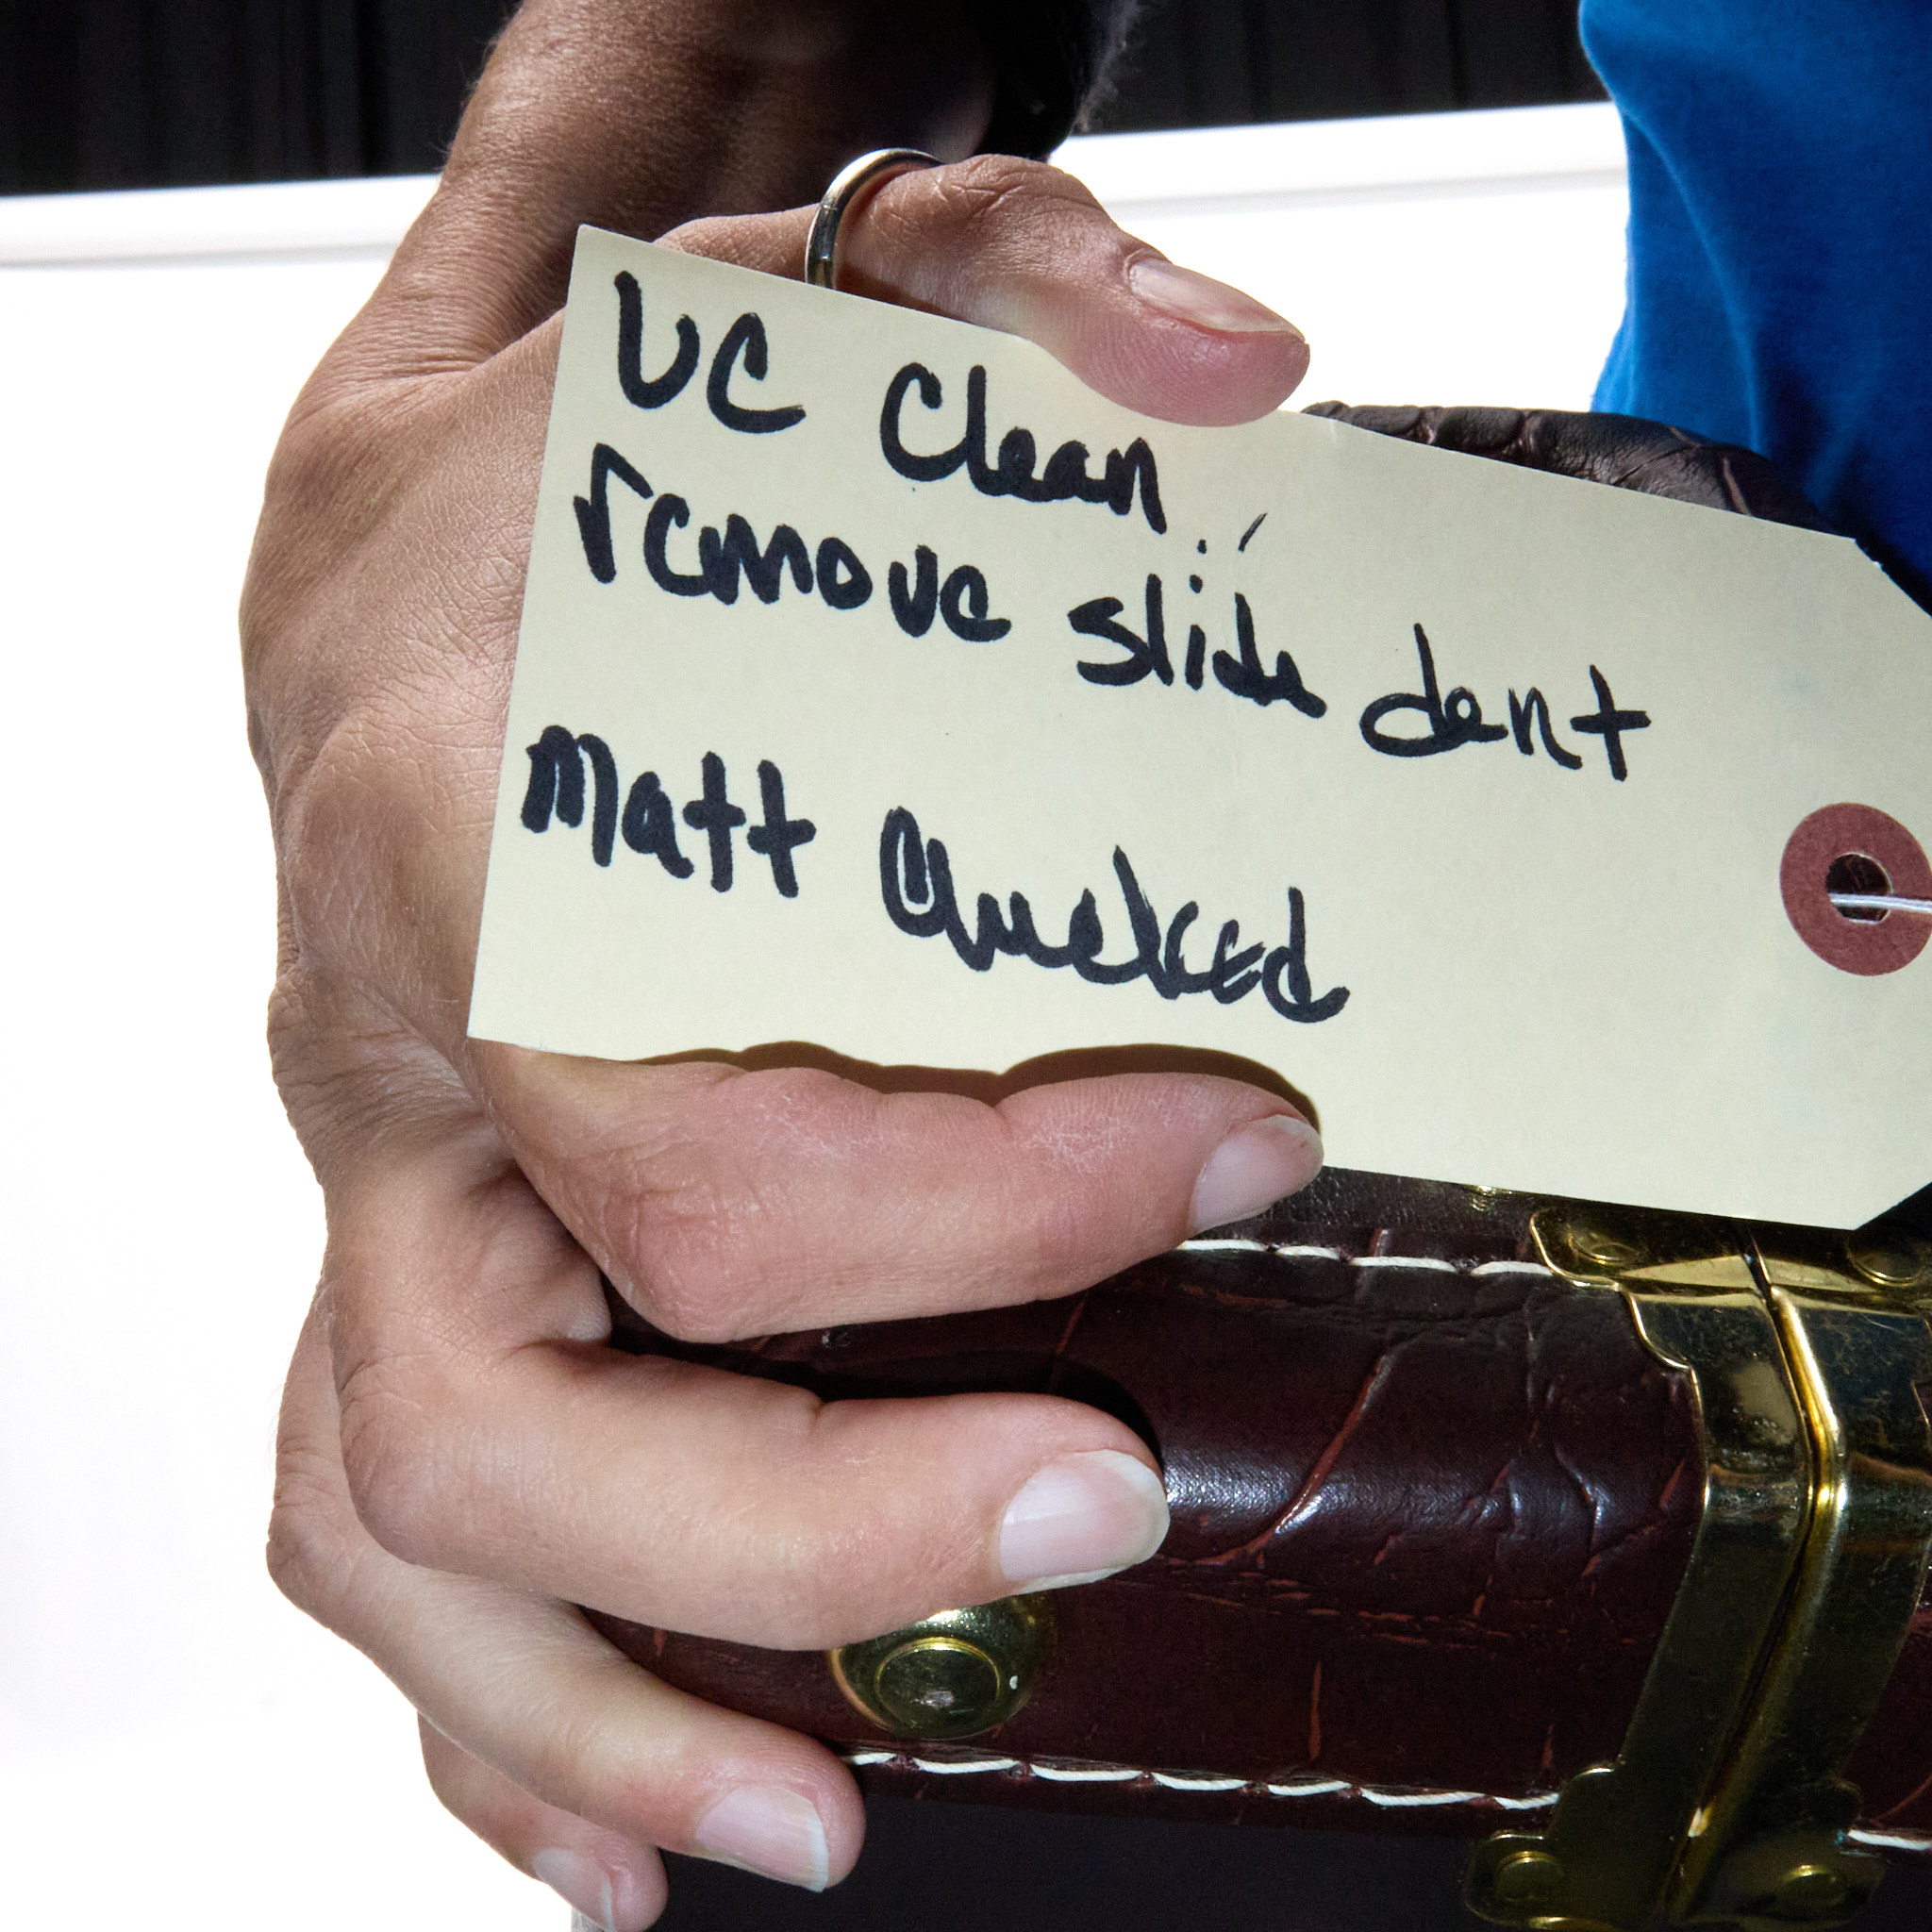 UC Clean
remove slide dent
Matt Checked